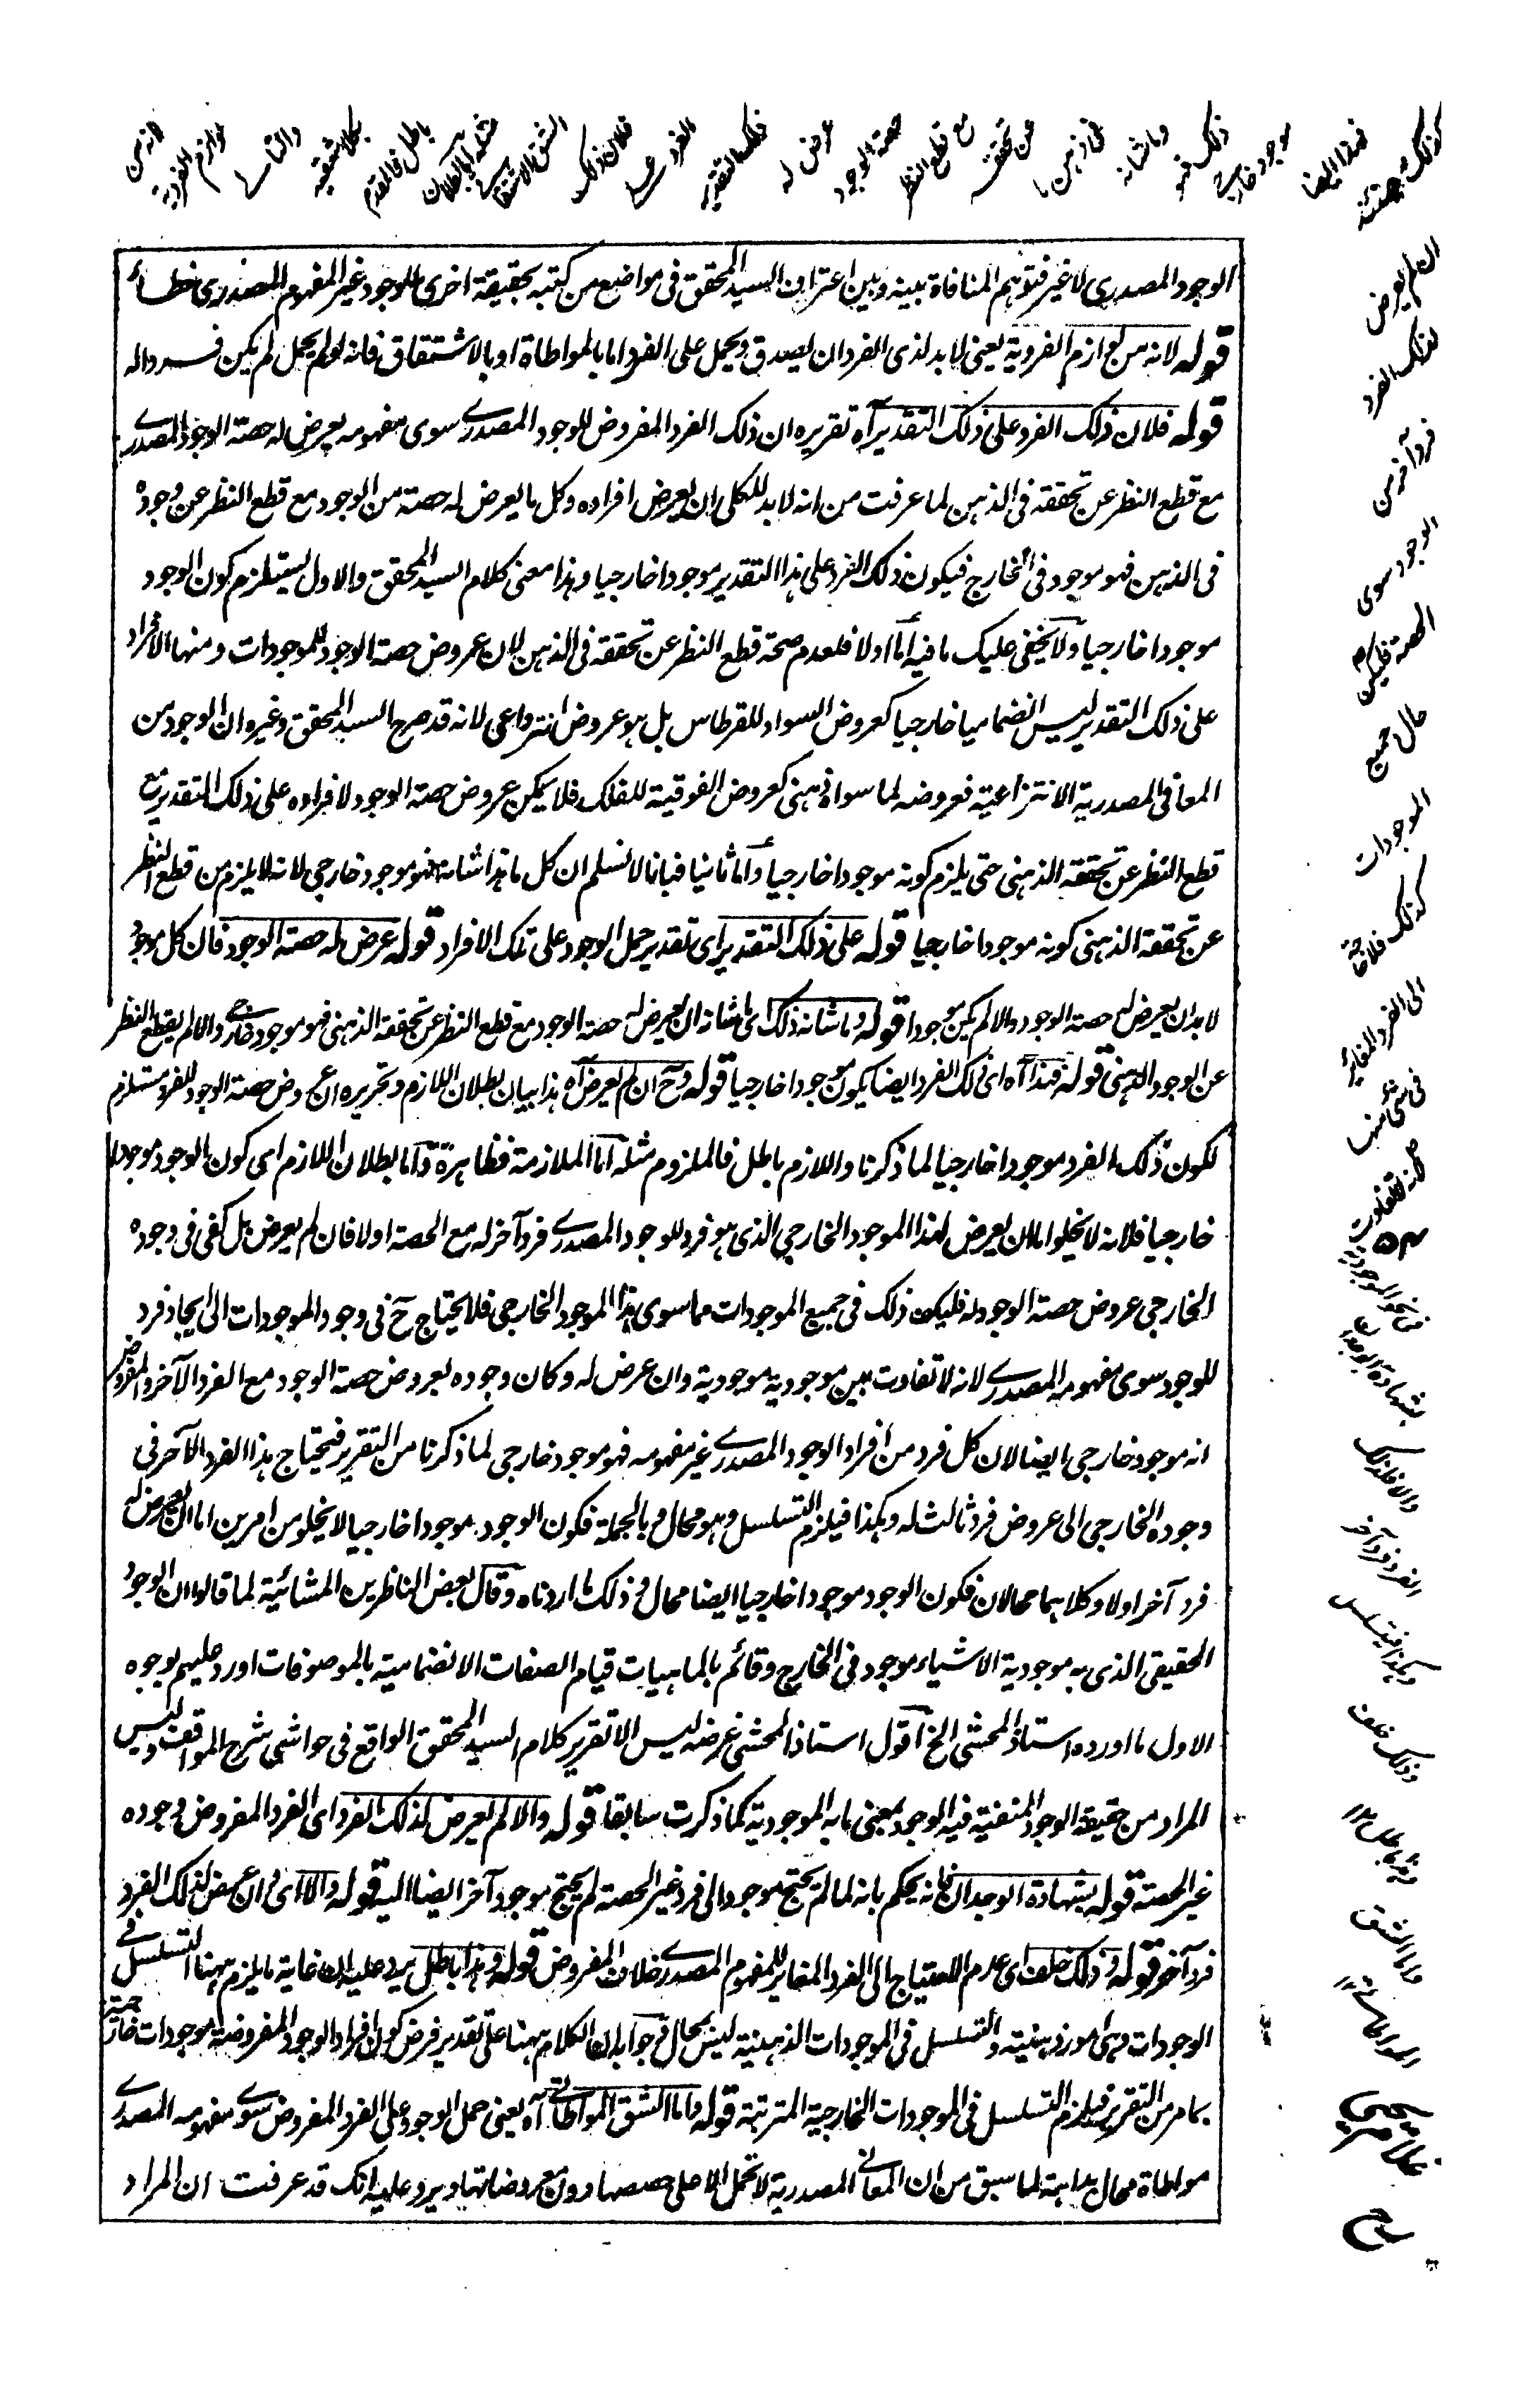 الوجود المصدري لا غير فتوهم المنافاة بينه وبين اعتراف السيد المحقق في مواضع من كتبه بحقيقة اخرى للوجود غير المفهوم المصدري خطأ
قوله لانه من لوازم الفردية يعني لا بد لذي الفرد ان يصدق ويحمل على الفرد اما بالمواطاة او بالاشتقاق فانه لو لم يحمل لم يكن فردا له
قوله فلان ذلك الفرد على ذلك التقدير آه تقريره ان ذلك الفرد المفروض للوجود المصدري سوى مفهومه يعرض له حصة الوجود المصدري
مع قطع النظر عن تحققه في الذهن لما عرفت من انه لا بد للكلي ان يعرض افراده وكل ما يعرض له حصة من الوجود مع قطع النظر عن وجوده
في الذهن فهو موجود في الخارج فيكون ذلك الفرد على هذا التقدير موجودا خارجيا وهذا معنى كلام السيد المحقق والاول يستلزم كون الوجود
موجودا خارجيا ولا يخفى عليك ما فيه اما اولا فلعدم صحة قطع النظر عن تحققه في الذهن لان عروض حصة الوجود للموجودات ومنها الافراد
على ذلك التقدير ليس انضماميا خارجيا كعروض السواد للقرطاس بل هو عروض انتزاعي لانه قد صرح السيد المحقق وغيره ان الوجود من
المعاني المصدرية الانتزاعية فعروضه لما سواه ذهني كعروض الفوقية للفلك فلا يمكن عروض حصة الوجود لافراده على ذلك التقدير مع
قطع النظر عن تحققه الذهني حتى يلزم كونه موجودا خارجيا واما ثانيا فبانا لا نسلم ان كل ما هذا شانه فهو موجود خارجي لانه لا يلزم من قطع النظر
عن تحققه الذهني كونه موجودا خارجيا قوله على ذلك التقدير اي تقدير حمل الوجود على تلك الافراد قوله عرض له حصة الوجود فان كل موجود
لا بد ان يعرض له حصة الوجود والا لم يكن موجودا قوله وما شانه ذلك اي ما شانه ان يعرض له حصة الوجود مع قطع النظر عن تحققه الذهني فهو موجود خارجي والا لم يقطع النظر
عن الوجود الذهني قوله فهذا آه اي ذلك الفرد ايضا يكون موجودا خارجيا قوله وح ان لم يعرض آه هذا بيان بطلان اللازم وتحريره ان عروض حصة الوجود للفرد مستلزم
لكون ذلك الفرد موجودا خارجيا لما ذكرنا واللازم باطل فالملزوم مثله اما الملازمة فظاهرة واما بطلان اللازم اي كون الوجود موجودا
خارجيا فلانه لا يخلو اما ان يعرض لهذا الموجود الخارجي الذي هو فرد للوجود المصدري فرد آخر له مع الحصة او لا فان لم يعرض بل كفى في وجوده
الخارجي عروض حصة الوجود له فليكن ذلك في جميع الموجودات مما سوى هذا الموجود الخارجي فلا يحتاج ح في وجود الموجودات الى ايجاد فرد
للوجود سوى مفهومه المصدري لانه لا تفاوت بين موجودية موجودية وان عرض له وكان وجوده بعروض حصة الوجود مع الفرد الآخر والمفروض
انه موجود خارجي ايضا لان كل فرد من افراد الوجود المصدري غير مفهومه فهو موجود خارجي لما ذكرنا من التقرير فيحتاج هذا الفرد الآخر في
وجوده الخارجي الى عروض فرد ثالث له وهكذا فيلزم التسلسل وهو محال وبالجملة فكون الوجود موجودا خارجيا لا يخلو من امرين اما ان يعرض له
فرد آخر او لا وكلاهما محالان فكون الوجود موجودا خارجيا ايضا محال وذلك ما اردناه وقال بعض الناظرين المشائية لما قالوا ان الوجود
الحقيقي الذي به موجودية الاشياء موجود في الخارج وقائم بالماهيات قيام الصفات الانضمامية بالموصوفات اورد عليهم بوجوه
الاول ما اورده استاذ المحشي الخ اقول استاذ المحشي غرضه ليس الا تقرير كلام السيد المحقق الواقع في حواشي شرح المواقف وليس
المراد من حقيقة الوجود المنفية فيه الوجود بمعنى ما به الموجودية كما ذكرت سابقا قوله والا لم يعرض لذلك الفرد اي الفرد المفروض وجوده
غير الحصة قوله بشهادة الوجدان فانه يحكم بانه لما لم يحتج موجود الى فرد غير الحصة لم يحتج موجود آخر ايضا اليه قوله والا اي وان عرض لذلك الفرد
فرد آخر قوله وذلك خلف اي عدم الاحتياج الى الفرد المغاير للمفهوم المصدري خلاف المفروض قوله وهذا باطل يرد عليه ان غاية ما يلزم ههنا التسلسل في
الوجودات وهي امور ذهنية والتسلسل في الموجودات الذهنية ليس بمحال وجوابه ان الكلام ههنا على تقدير فرض كون افراد الوجود المفروضة موجودات خارجية
بما مر من التقرير فيلزم التسلسل في الموجودات الخارجية المترتبة قوله واما الشق المواطاتي آه يعني حمل الوجود على الفرد المفروض سوى مفهومه المصدري
مواطاة محال بداهة لما سبق من ان المعاني المصدرية لا تحمل الا على حصصها دون معروضاتها ويرد عليه انك قد عرفت ان المراد
لانه من
لوازم الفردية
والتالي
بكلا شقيه
باطل فالمقدم
مثله اما بطلان
الشق الاشتقاقي
فلان ذلك
الفرد على
ذلك التقدير
عرض له
حصة الوجود
مع قطع النظر
عن تحققه
في الذهن
وما شانه
ذلك فهو
موجود خارجي
فهذا ايضا
كذلك وحينئذ
ان لم يعرض
لذلك الفرد
فرد آخر من
الوجود سوى
الحصة فليكن
حال جميع
الموجودات
كذلك فلا حاجة
الى الفرد المغاير
في شيء منها
بشهادة الوجدان
والا فلذلك
الفرد فرد آخر
وهكذا فيتسلسل
وذلك خلف
وهذا باطل
واما الشق
غلام يحيى